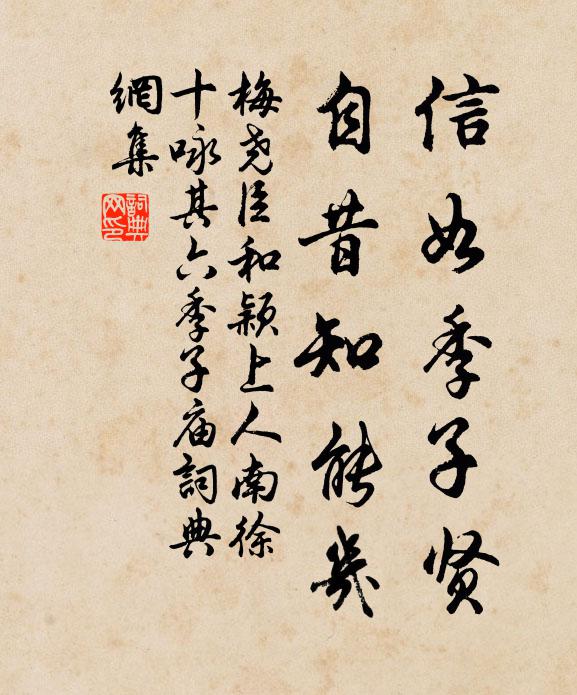 信如季子贤
自昔知能幾
梅尧臣和颖上人南徐
十咏其六季子庙詞典
網集
詞典
网印